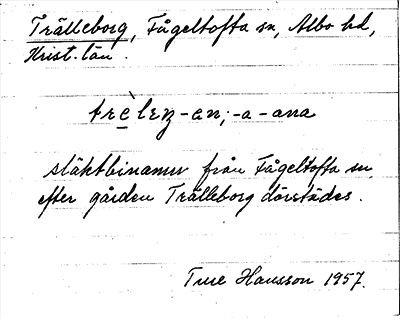 Trälleborg, Fågeltofta sn, Albo hd,
Krist. län.
trèleʒ -en; -a -ana
släktbinamn från Fågeltofta sn,
efter gården Trälleborg därstädes.
Ture Hansson 1957.